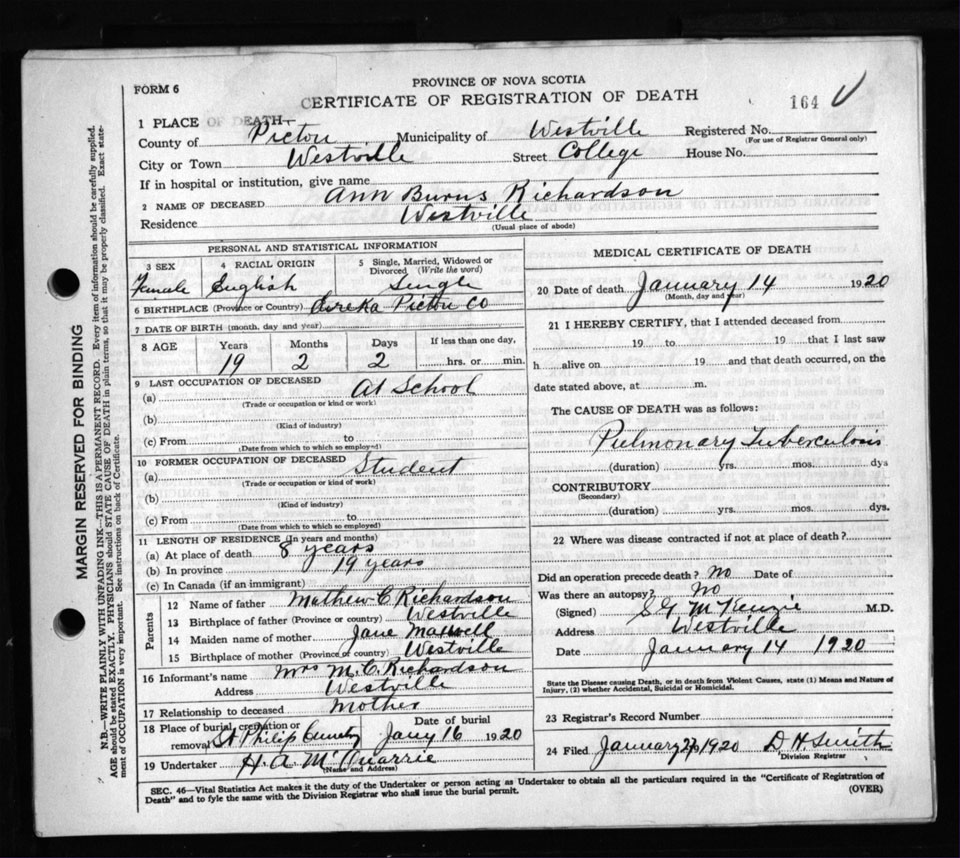 PROVINCE OF NOVA SCOTIA
FORM 6
CERTIFICATE OF REGISTRATION OF DEATH
164
1 PLACE OF DEATH—
County of Pictou Municipality of Westville Registered No.
(For use of Registrar General only)
City or Town Westville Street College House No.
If in hospital or institution, give name
2 NAME OF DECEASED Ann Burns Richardson
Residence Westville
(Usual place of abode)
PERSONAL AND STATISTICAL INFORMATION
3 SEX 4 RACIAL ORIGIN 5 Single, Married, Widowed or Divorced (Write the word)
Female English Single
6 BIRTHPLACE (Province or Country) Eureka Pictou Co
7 DATE OF BIRTH (month, day and year)
8 AGE Years Months Days If less than one day,
19 2 2 hrs. or min.
9 LAST OCCUPATION OF DECEASED
(a) At School
(Trade or occupation or kind or work)
(b)
(Kind of industry)
(c) From to
(Date from which to which so employed)
10 FORMER OCCUPATION OF DECEASED
(a) Student
(Trade or occupation or kind of work)
(b)
(Kind of industry)
(c) From to
(Date from which to which so employed)
11 LENGTH OF RESIDENCE (In years and months)
(a) At place of death 8 years
(b) In province 19 years
(c) In Canada (if an immigrant)
Parents
12 Name of father Mathew C Richardson
13 Birthplace of father (Province or country) Westville
14 Maiden name of mother Jane Maxwell
15 Birthplace of mother (Province or country) Westville
16 Informant's name Mrs M. C. Richardson
Address Westville
17 Relationship to deceased Mother
18 Place of burial, cremation or removal St Philip Cemetery
Date of burial Jany 16 1920
19 Undertaker H. A. McQuarrie
(Name and Address)
MEDICAL CERTIFICATE OF DEATH
20 Date of death January 14 1920
(Month, day and year)
21 I HEREBY CERTIFY, that I attended deceased from
19 to 19 that I last saw
h alive on 19 and that death occurred, on the
date stated above, at m.
The CAUSE OF DEATH was as follows:
Pulmonary Tuberculosis
(duration) yrs. mos. dys
CONTRIBUTORY
(Secondary)
(duration) yrs. mos. dys.
22 Where was disease contracted if not at place of death?
Did an operation precede death? No Date of
Was there an autopsy? No
(Signed) S G McKenzie M.D.
Address Westville
Date January 14 1920
State the Disease causing Death, or in death from Violent Causes, state (1) Means and Nature of
Injury, (2) whether Accidental, Suicidal or Homicidal.
23 Registrar's Record Number
24 Filed January 1920 D. H. Smith
Division Registrar
SEC. 46—Vital Statistics Act makes it the duty of the Undertaker or person acting as Undertaker to obtain all the particulars required in the "Certificate of Registration of
Death" and to fyle the same with the Division Registrar who shall issue the burial permit.
(OVER)
MARGIN RESERVED FOR BINDING
N.B.—WRITE PLAINLY WITH UNFADING INK—THIS IS A PERMANENT RECORD. Every item of information should be carefully supplied.
AGE should be stated EXACTLY. PHYSICIANS should STATE CAUSE OF DEATH in plain terms, so that it may be properly classified. Exact state-
ment of OCCUPATION is very important. See instructions on back of Certificate.